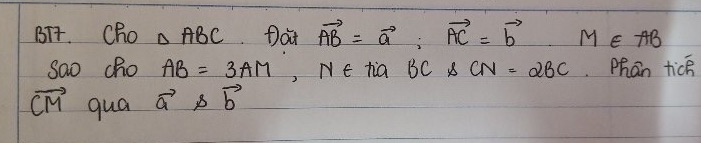 BT7. Cho △ ABC. Đặt $\overrightarrow{AB} = \vec{a}$ ; $\overrightarrow{AC} = \vec{b}$ . M ∈ AB
sao cho AB = 3AM, N ∈ tia BC & CN = 2BC. Phân tích
$\overrightarrow{CM}$ qua $\vec{a}$ & $\vec{b}$